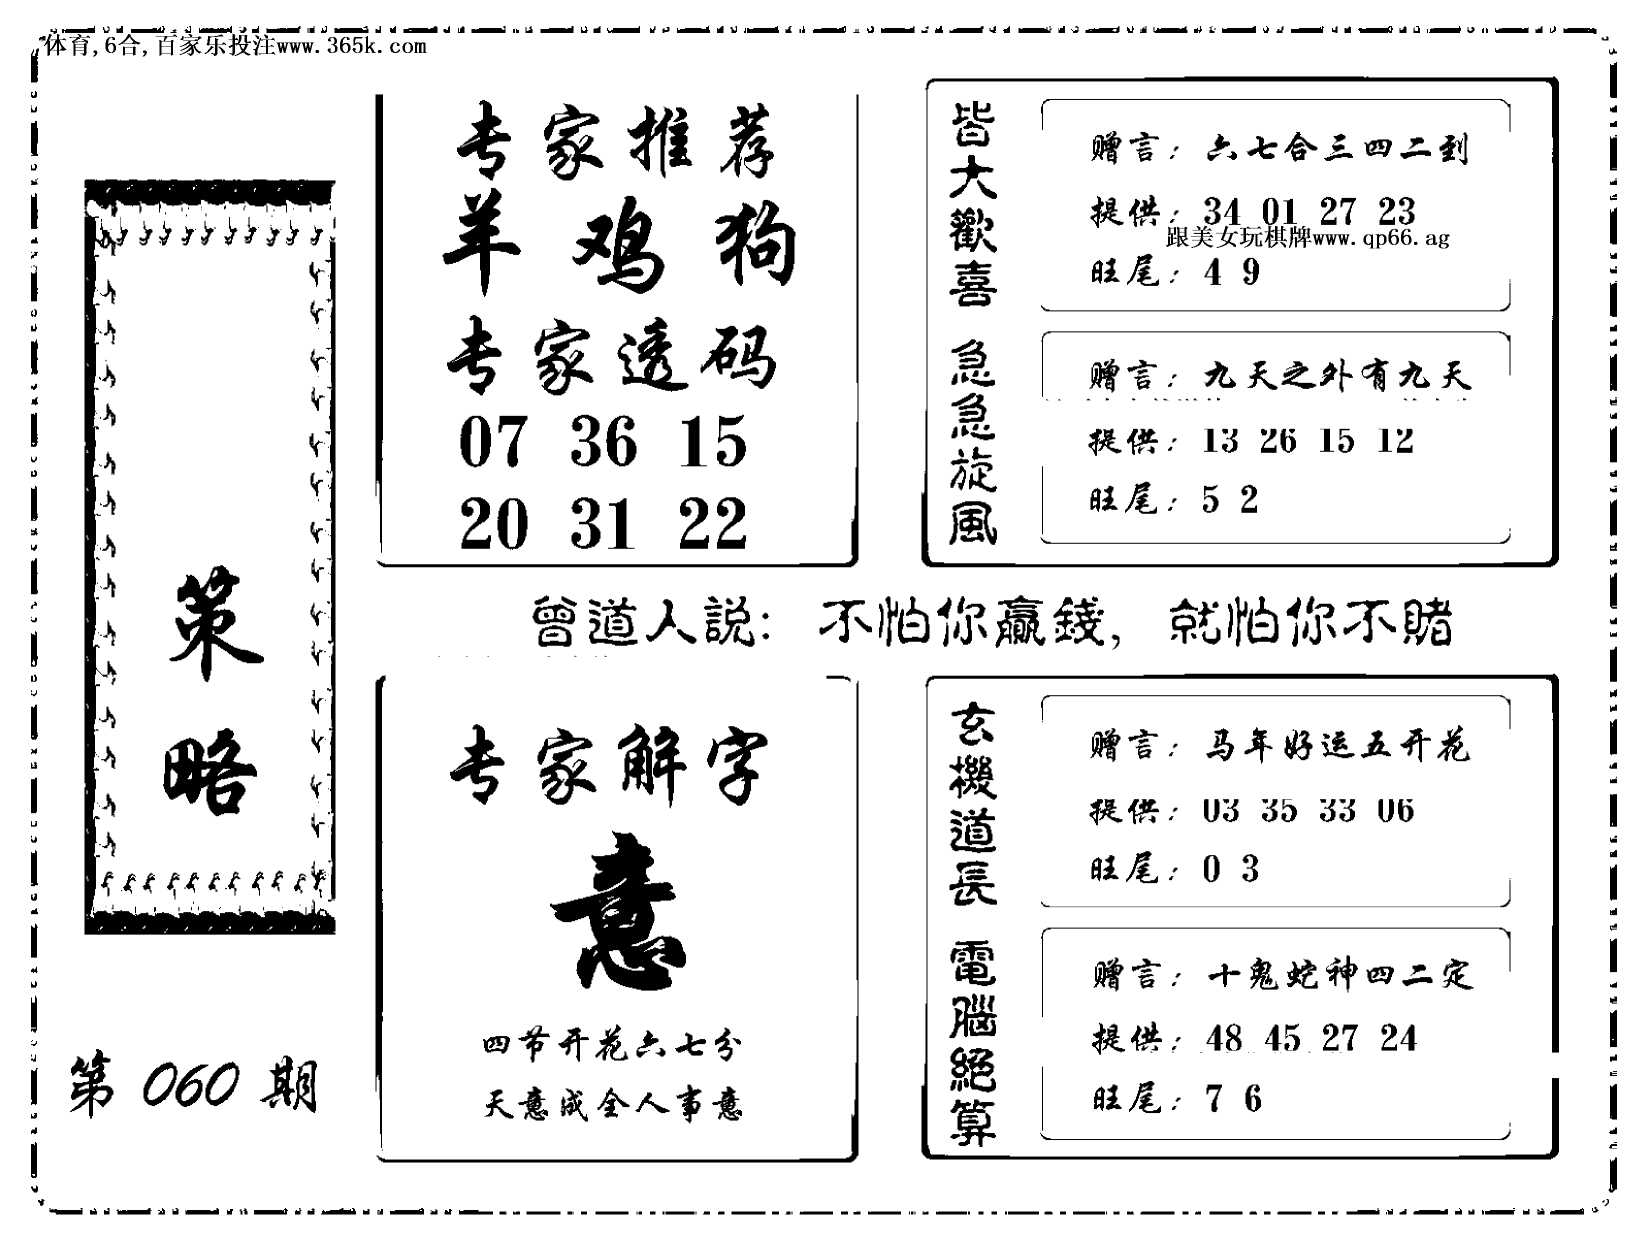 体育,6合,百家乐投注www.365k.com
策略
第 060 期
专家推荐
羊 鸡 狗
专家透码
07 36 15
20 31 22
皆大歡喜
赠言: 六七合三四二到
提供: 34 01 27 23
跟美女玩棋牌www.qp66.ag
旺尾: 4 9
急急旋風
赠言: 九天之外有九天
提供: 13 26 15 12
旺尾: 5 2
曾道人説: 不怕你贏錢, 就怕你不賭
专家解字
意
四节开花六七分
天意成全人事意
玄機道長
赠言: 马年好运五开花
提供: 03 35 33 06
旺尾: 0 3
電腦絕算
赠言: 十鬼蛇神四二定
提供: 48 45 27 24
旺尾: 7 6